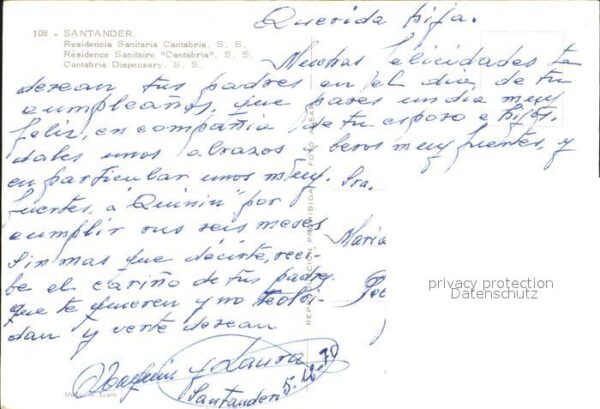 108 - SANTANDER.
Residencia Sanitaria Cantabria. S. S.
Résidence Sanitaire "Cantabria". S. S.
Cantabria Dispensary. S. S.
Querida hija.
Muchas felicidades te
desean tus padres en el dia de tu
cumpleaños, que pases un dia muy
feliz, en compañia de tu esposo e hijos,
dales unos abrazos y besos muy fuertes, y
en particular unos muy
fuertes, a "Quinin" por
cumplir sus seis meses
Sin mas que decirte, reci-
be el cariño de tus padres
que te quieren y no te olvi-
dan y verte desean
Joaquin y Laura
Santander 5-12-70
Sra.
Maria
REPRODUCCION PROHIBIDA
FOTO
privacy protection
Datenschutz